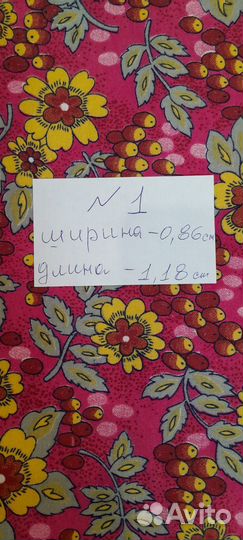 N 1
ширина - 0,86 см
длина - 1,18 см
Avito